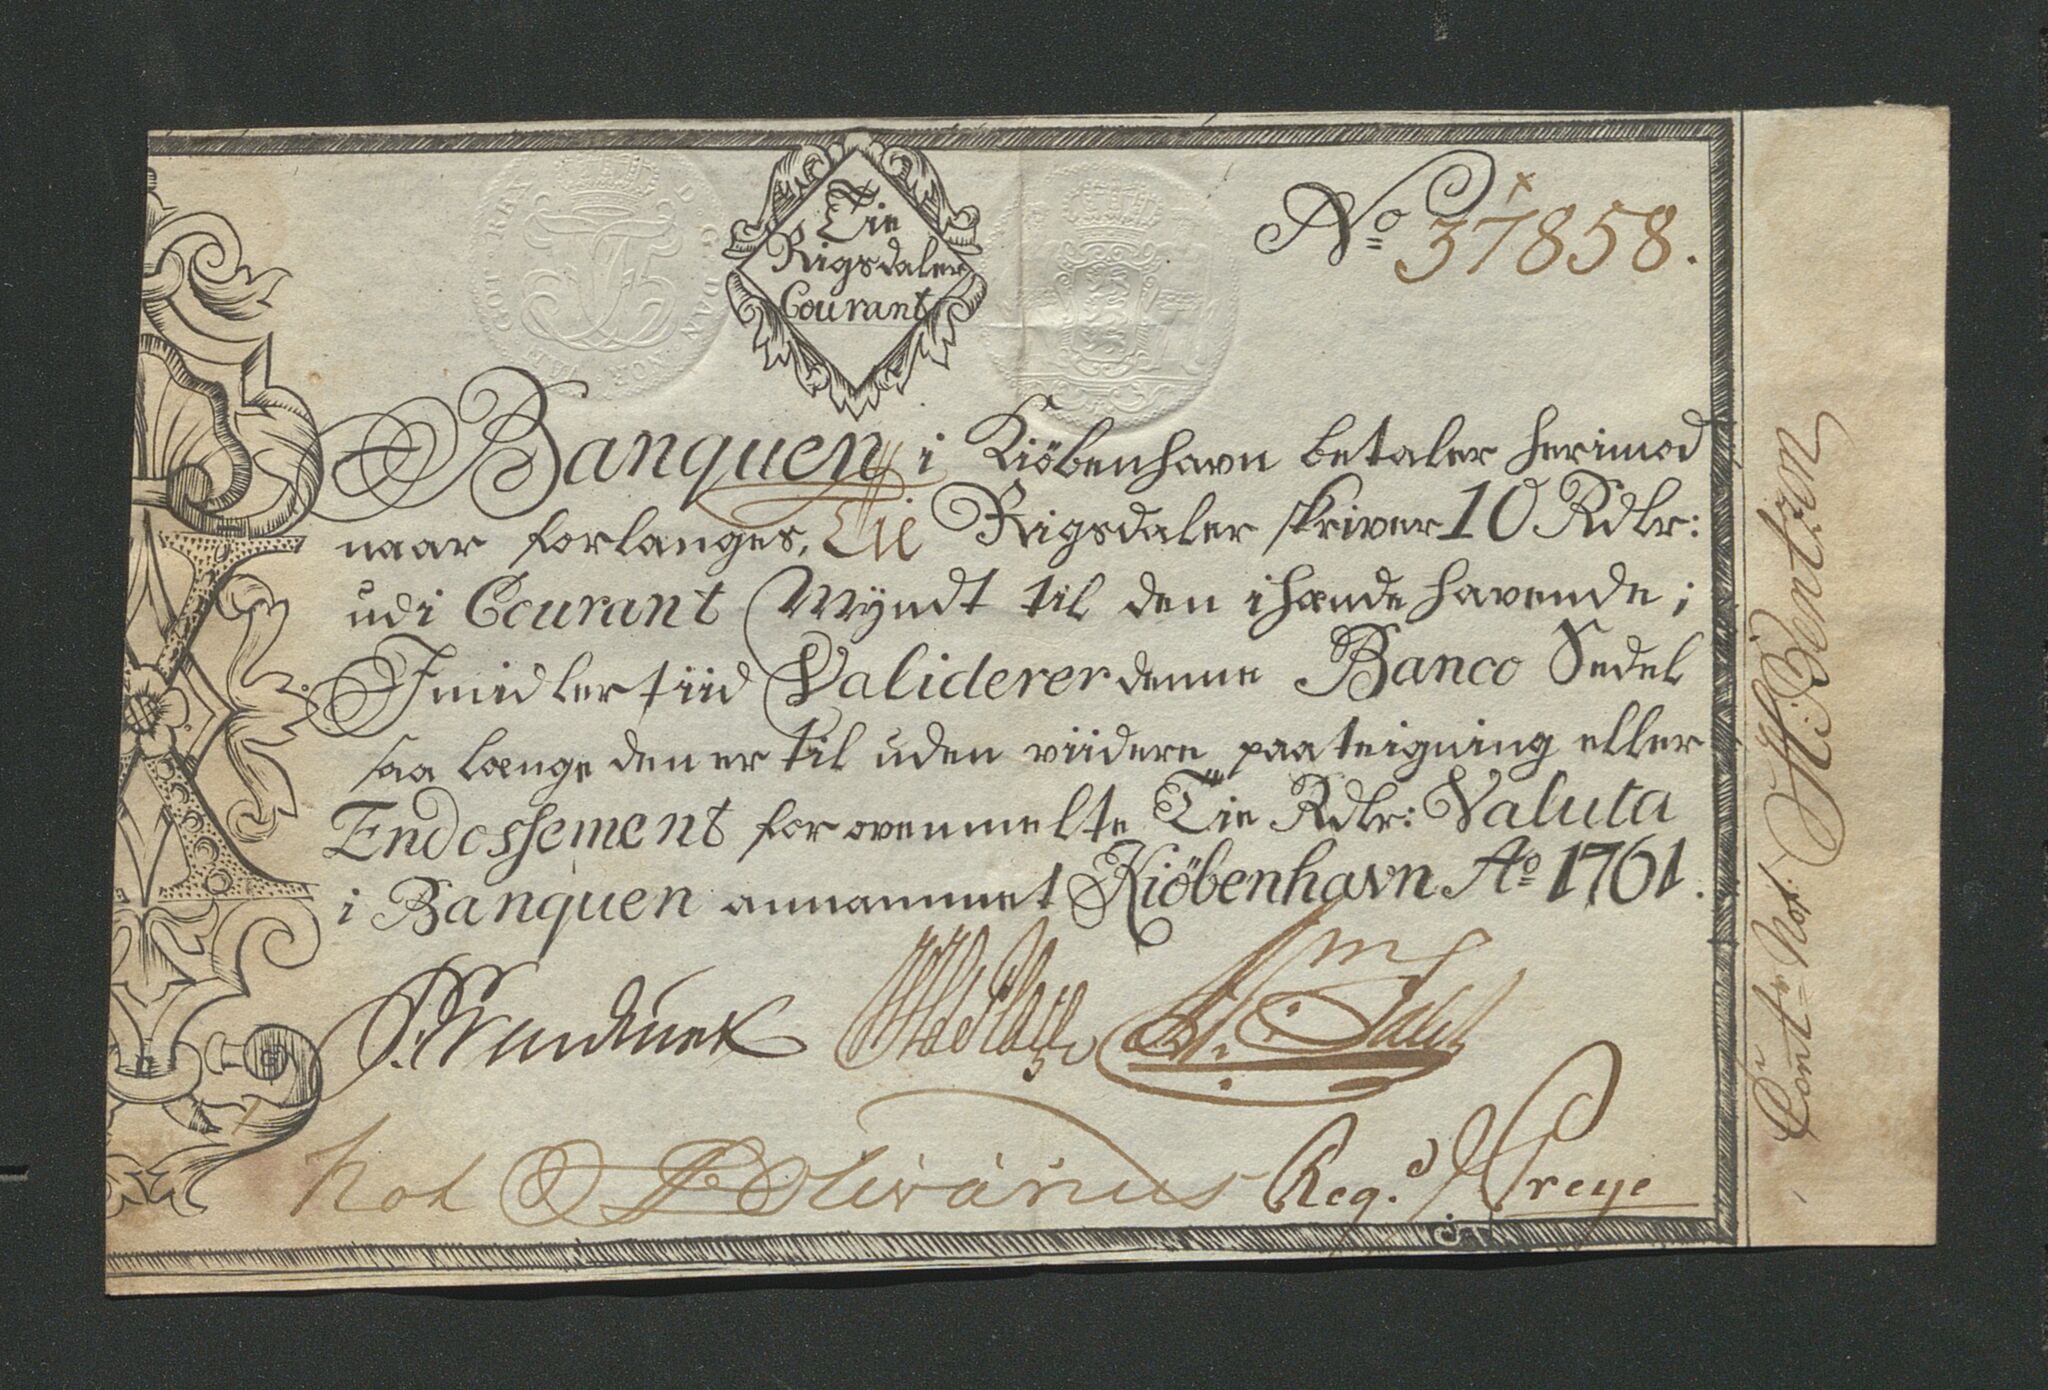 Tie
Rigsdaler
Courant
No 37858.
Banquen i Kiöbenhavn betaler herimod
naar forlanges, Tie Rigsdaler skriver 10 Rdlr:
udi Courant Myndt til den ihændehavende;
Imidlertiid Validerer denne Banco Sedel
saa længe den er til uden viidere paateigning eller
Endossement for ovenmelte Tie Rdlr: Valuta
i Banquen annammet Kiöbenhavn Ao 1761.
Not Olivarius Reg.d Preye
Cont. Not. H: Bentzon
D. G. DAN. NOR. VAN. GOT. REX